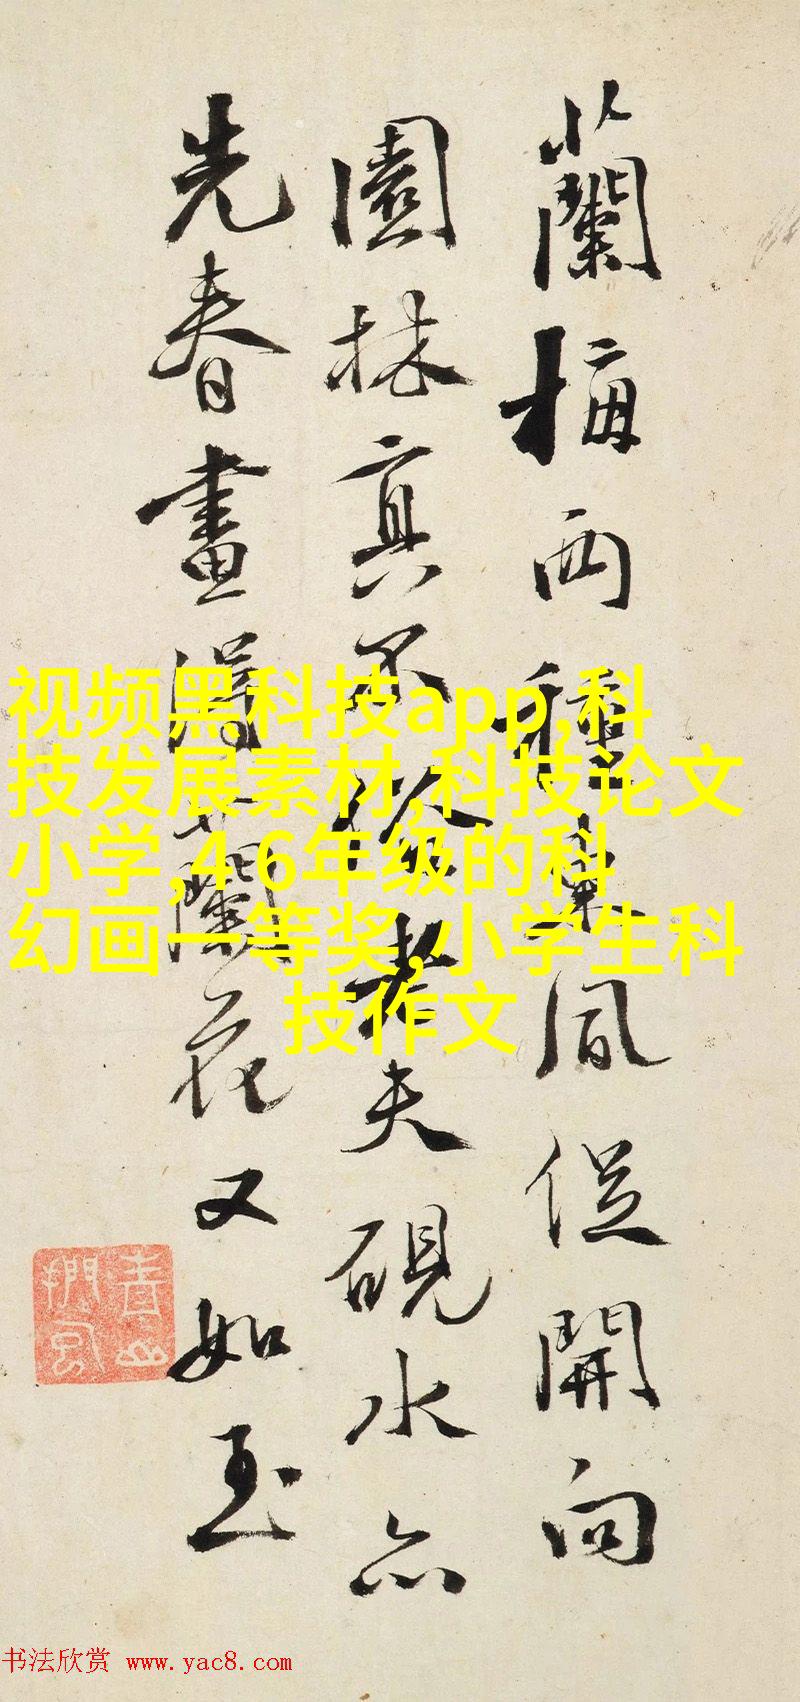 蘭梅兩種東風從開向
園林真不從老夫硯水亦
先春畫得蘭花又如玉
视频黑科技app,科
技发展素材,科技论文
小学,4-6年级的科
幻画一等奖,小学生科
技作文
书法欣赏 www.yac8.com